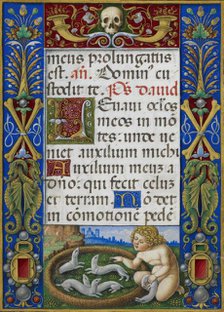 meus prolongatus
est. añ. Dominꝰ cu
stodit te. Ps David
Levavi oc̄los
meos in mō
tes: unde ve
niet auxilium michi
Auxilium meuz a
dn̄o: qui fecit celuz
et terram. Nō det
in cōmotionē pedē